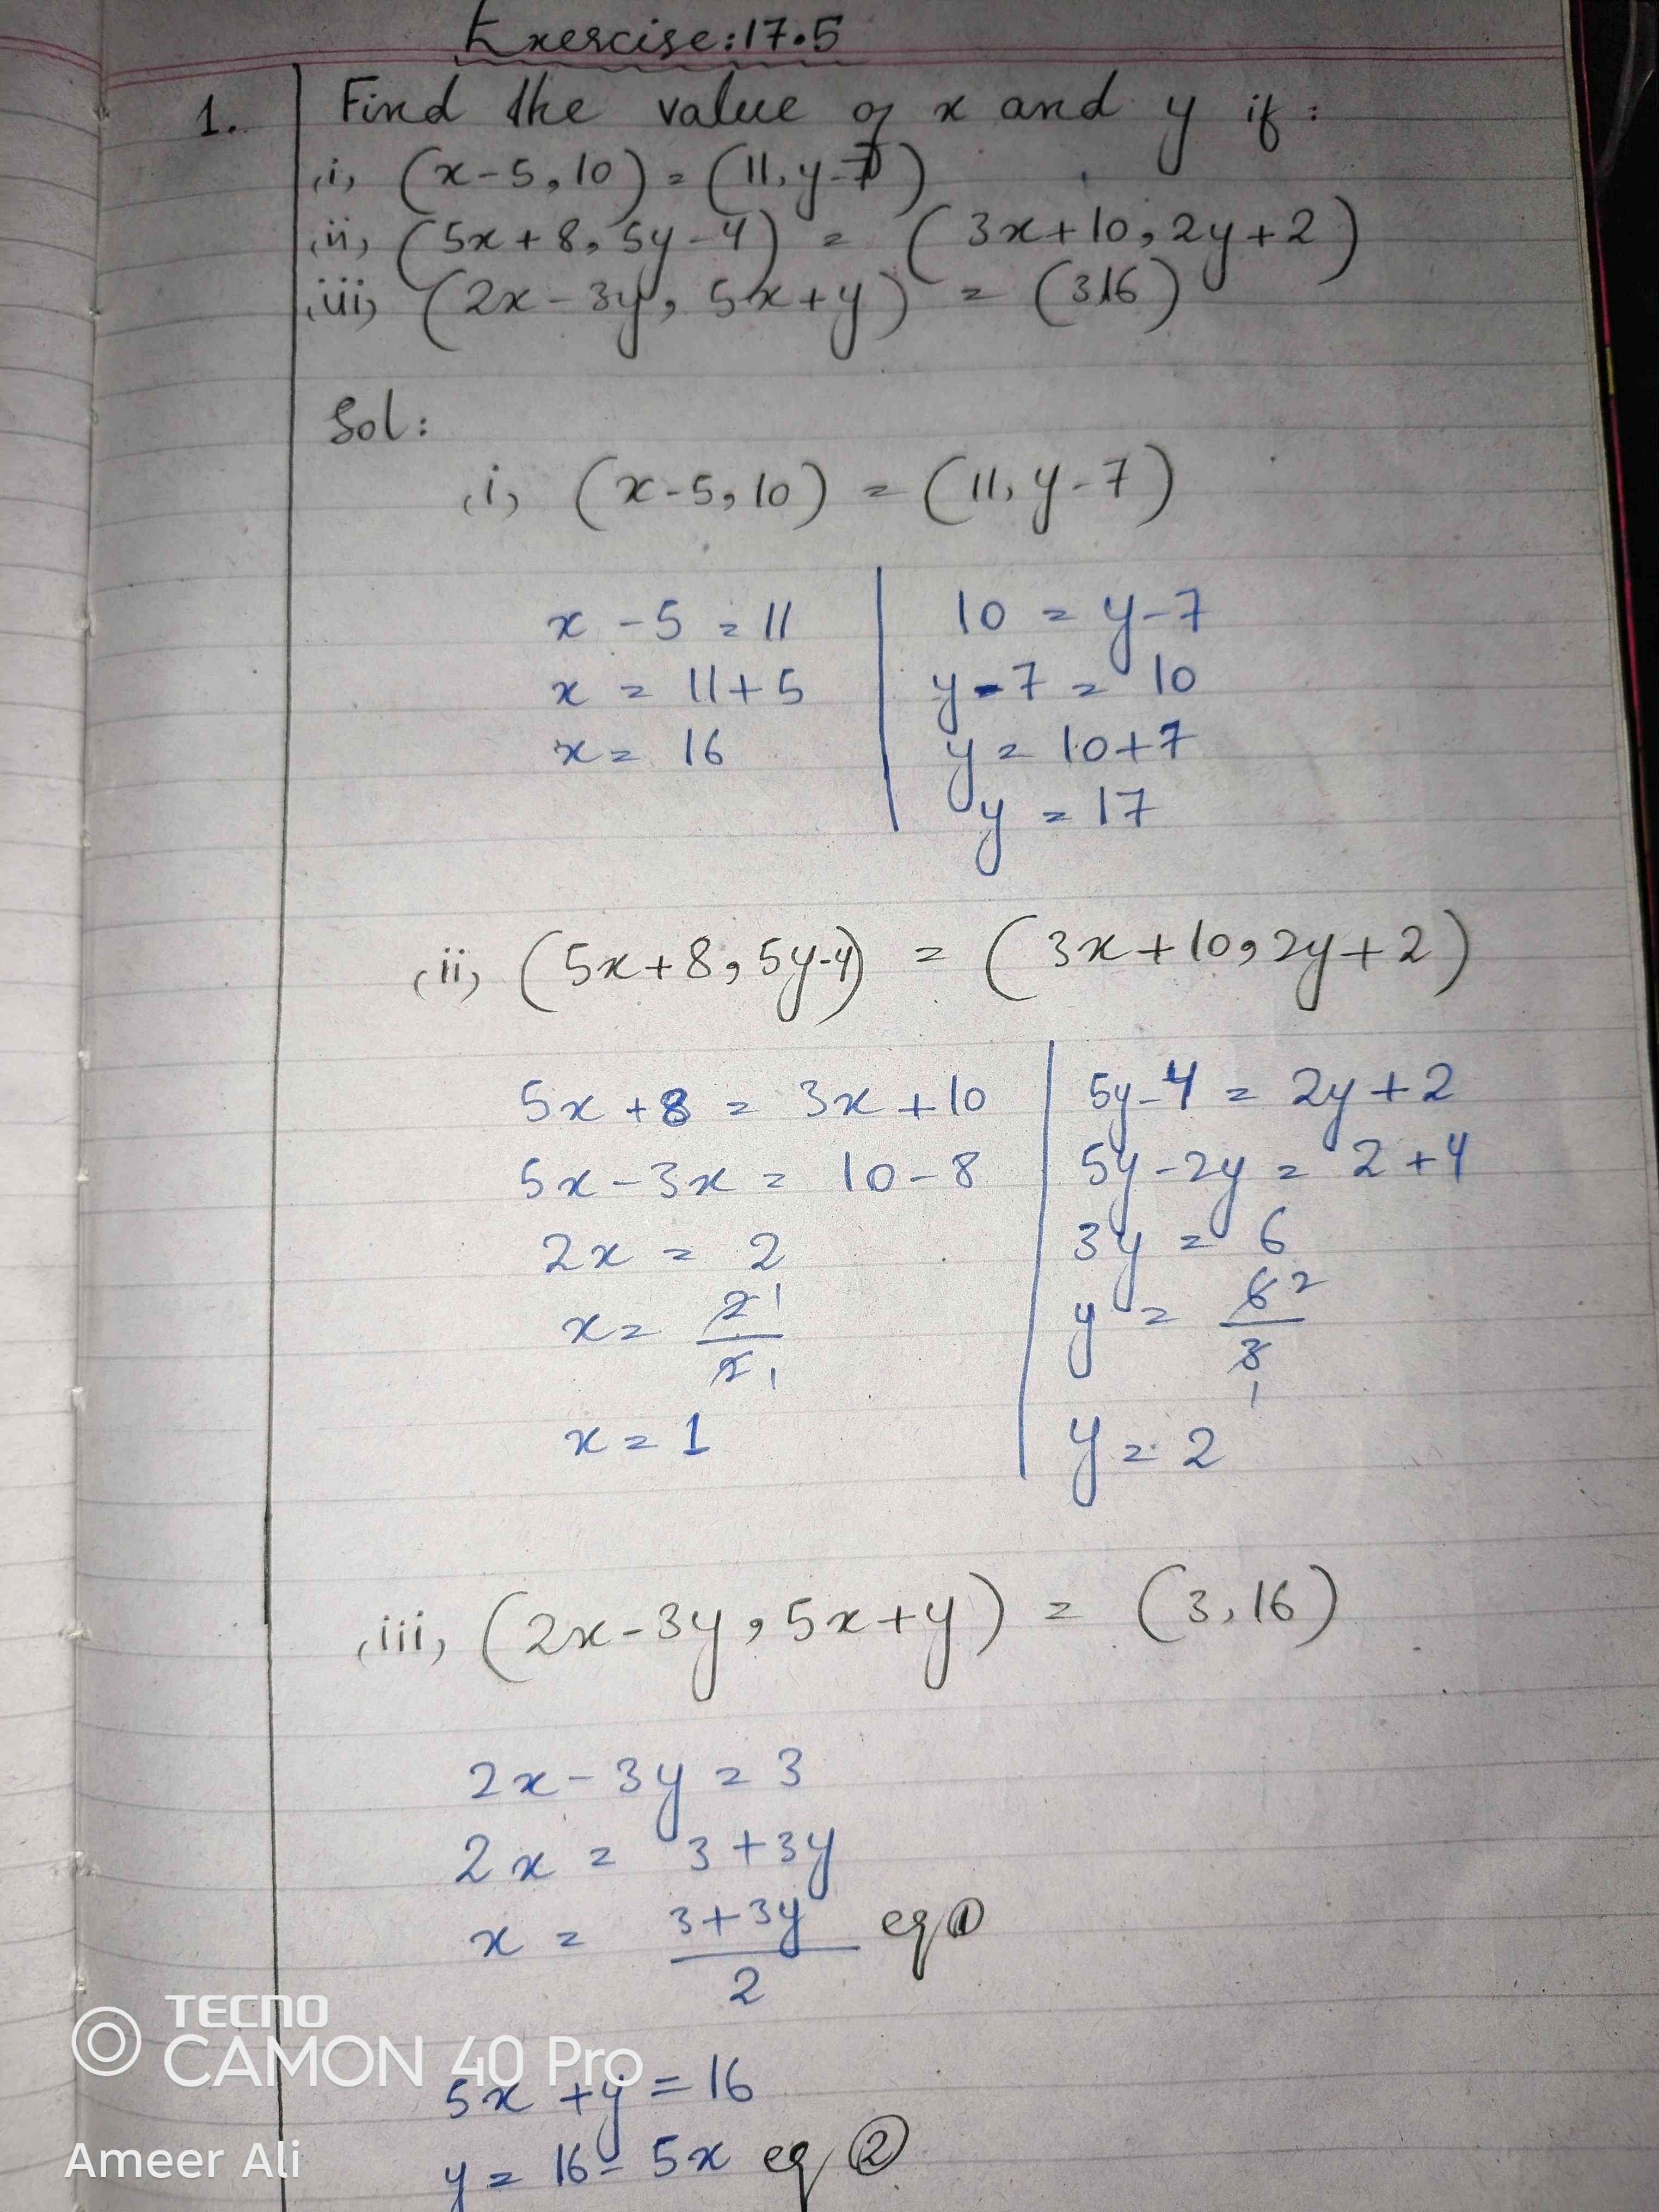 Exercise:17.5
1. Find the value of x and y if:
(i) (x-5,10) = (11,y-7)
(ii) (5x+8,5y-4) = (3x+10,2y+2)
(iii) (2x-3y,5x+y) = (316)
Sol:
(i) (x-5,10) = (11,y-7)
x-5=11
x=11+5
x=16
10=y-7
y-7=10
y=10+7
y=17
(ii) (5x+8,5y-4) = (3x+10,2y+2)
5x+8=3x+10
5x-3x=10-8
2x=2
x= 2 1 / 2 1
x=1
5y-4=2y+2
5y-2y=2+4
3y=6
y= 6 2 / 3 1
y=2
(iii) (2x-3y,5x+y) = (3,16)
2x-3y=3
2x=3+3y
x= 3+3y / 2 eq ①
5x+y=16
y=16-5x eq ②
TECNO
CAMON 40 Pro
Ameer Ali